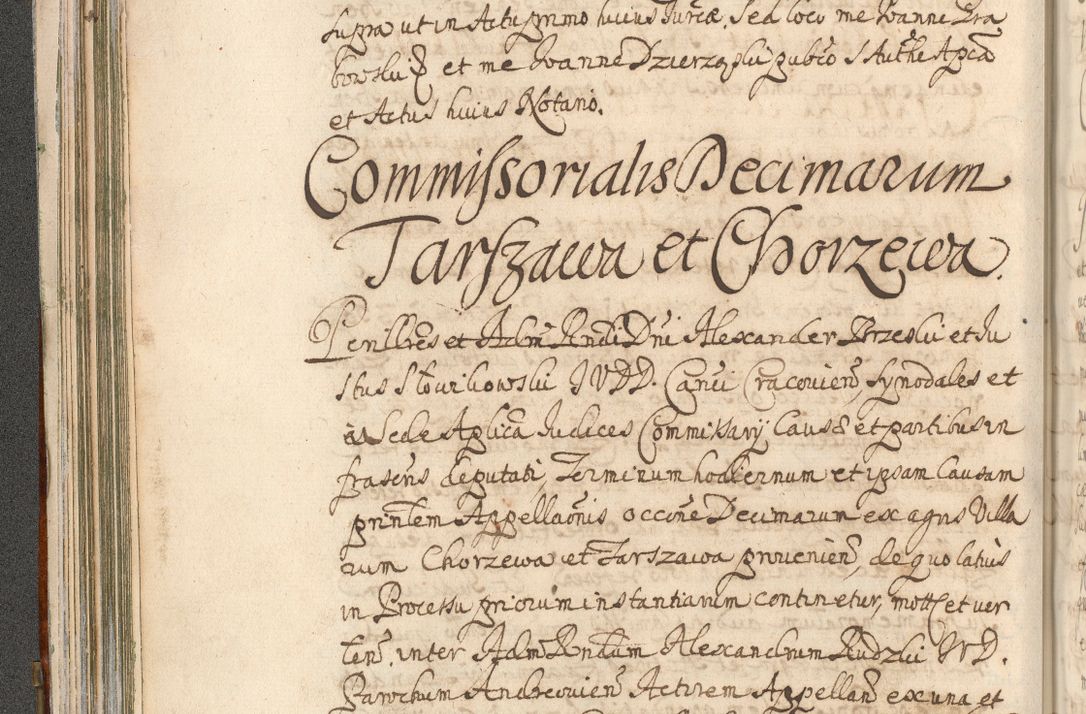 supra ut in Actu primo huius Juriæ. Sed loco me Joanne Gra
bowski et me Joanne Dzierząski publco S Authe Aplca
et Actus huius Notario.
Commissorialis Decimarum
Tarszawa et Chorzewa.
Perillres et Adm Rndi Dni Alexander Brzeski et Ju
stus Słowikowski JVDD. Canci Cracovien, Synodales et
a Sede Aplica Judices Commissarij causæ et partibus in
frascns deputati, Terminum hodiernum et ipsam Causam
prntem Appellaonis occone Decimarum ex agris Villa
rum Chorzewa et Tarszawa provenien, de quo latius
in Processu priorum instantiarum continetur, mott et ver
ten. inter Adm Rndum Alexandrum Rudzki JVD.
Parochum Andreovien Actorem Appellan ex una et